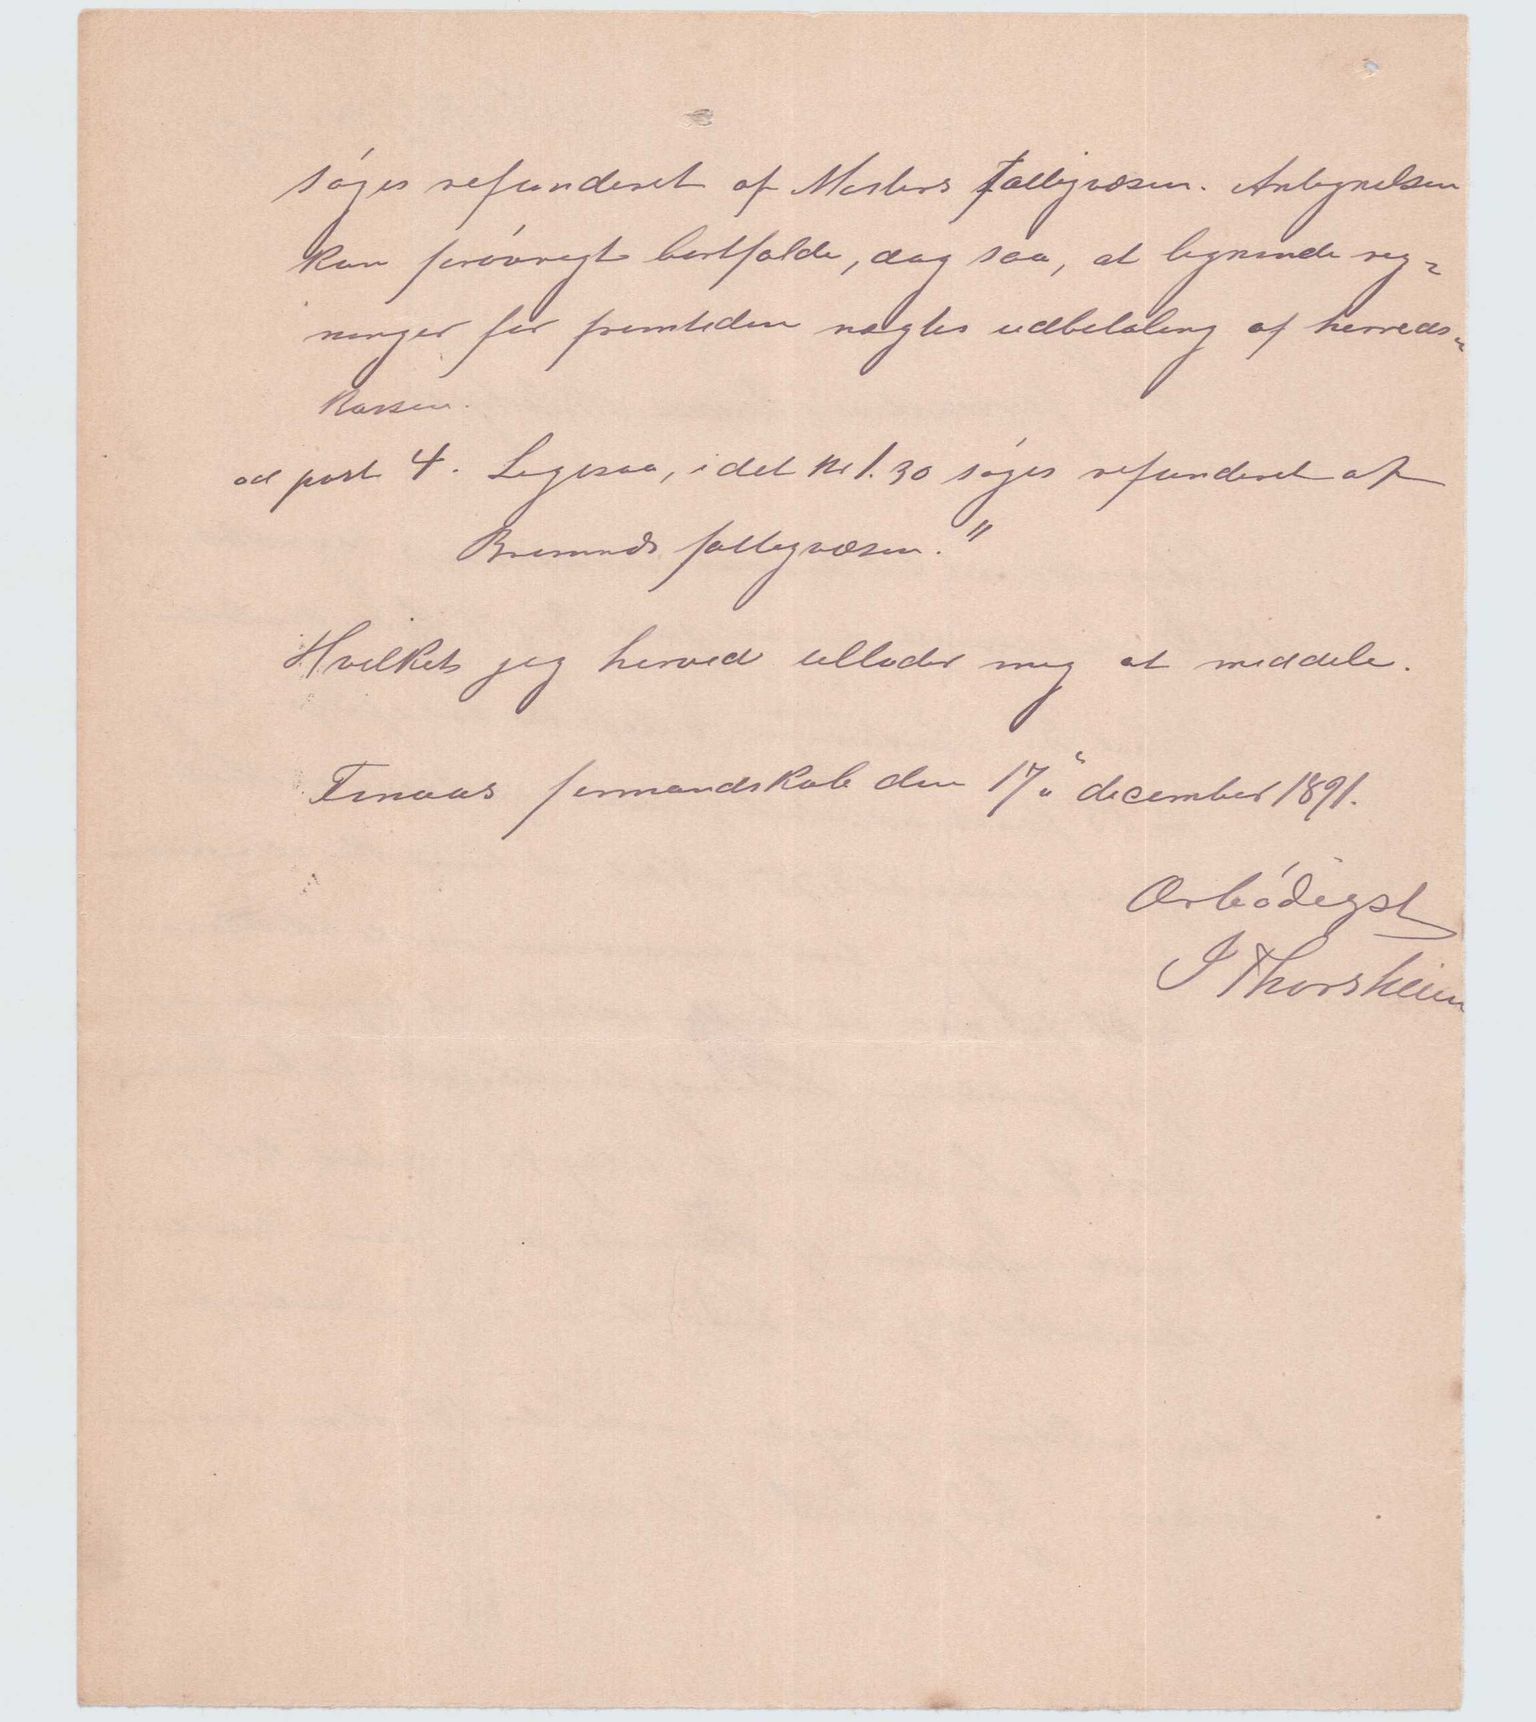 søges refunderet af Mosters fattigvæsen. Antegnelsen
kan forøvrigt bortfalde, dog saa, at lignende reg=
ninger for fremtiden nægtes udbetaling af herreds=
kassen.
ad post 4. Ligesaa, idet kr 1.30 søges refunderet af
Bremnds fattigvæsen."
Hvilket jeg herved tillader mig at meddele.
Finnaas formandskab den 17 december 1891.
Ærbødigst
J Thorsheim